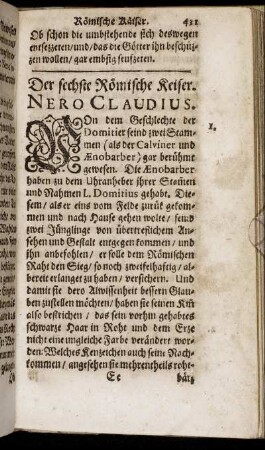 Römische Käiser. 431
Ob schon die umbstehende sich deswegen
entsetzeten/ und/ das die Götter ihn beschüt-
zen wollen/ gar embsig seufzeten.
Der sechste Römische Keiser.
NERO CLAUDIUS.
VOn dem Geschlechte der
Domitier seind zwei Stam-
men (als der Calviner und
Ænobarber) gar berühmt
gewesen. Die Ænobarber
haben zu dem Uhranheber ihrer Stamen
und Nahmen L. Domitius gehabt. Die-
sem/ als er eins vom Felde zurük gekom-
men und nach Hause gehen wolte/ seind
zwei Jünglinge von übertreflichem An-
sehen und Gestalt entgegen kommen/ und
ihn anbefohlen/ er solle dem Römischen
Raht den Sieg/ so noch zweifelhaftig/ al-
bereit erlanget zu haben/ versichern. Und
damit sie dero Alwissenheit bessern Glau-
ben zustellen möchten/ haben sie seinen Kin
also bestrichen/ das sein vorhin gehabtes
schwarze Haar in Roht und dem Erze
nicht eine ungleiche Farbe verändert wor-
den: Welches Kenzeichen auch seine Nach-
kommen/ angesehen sie mehrentheils roht-
Ee bär-
1.